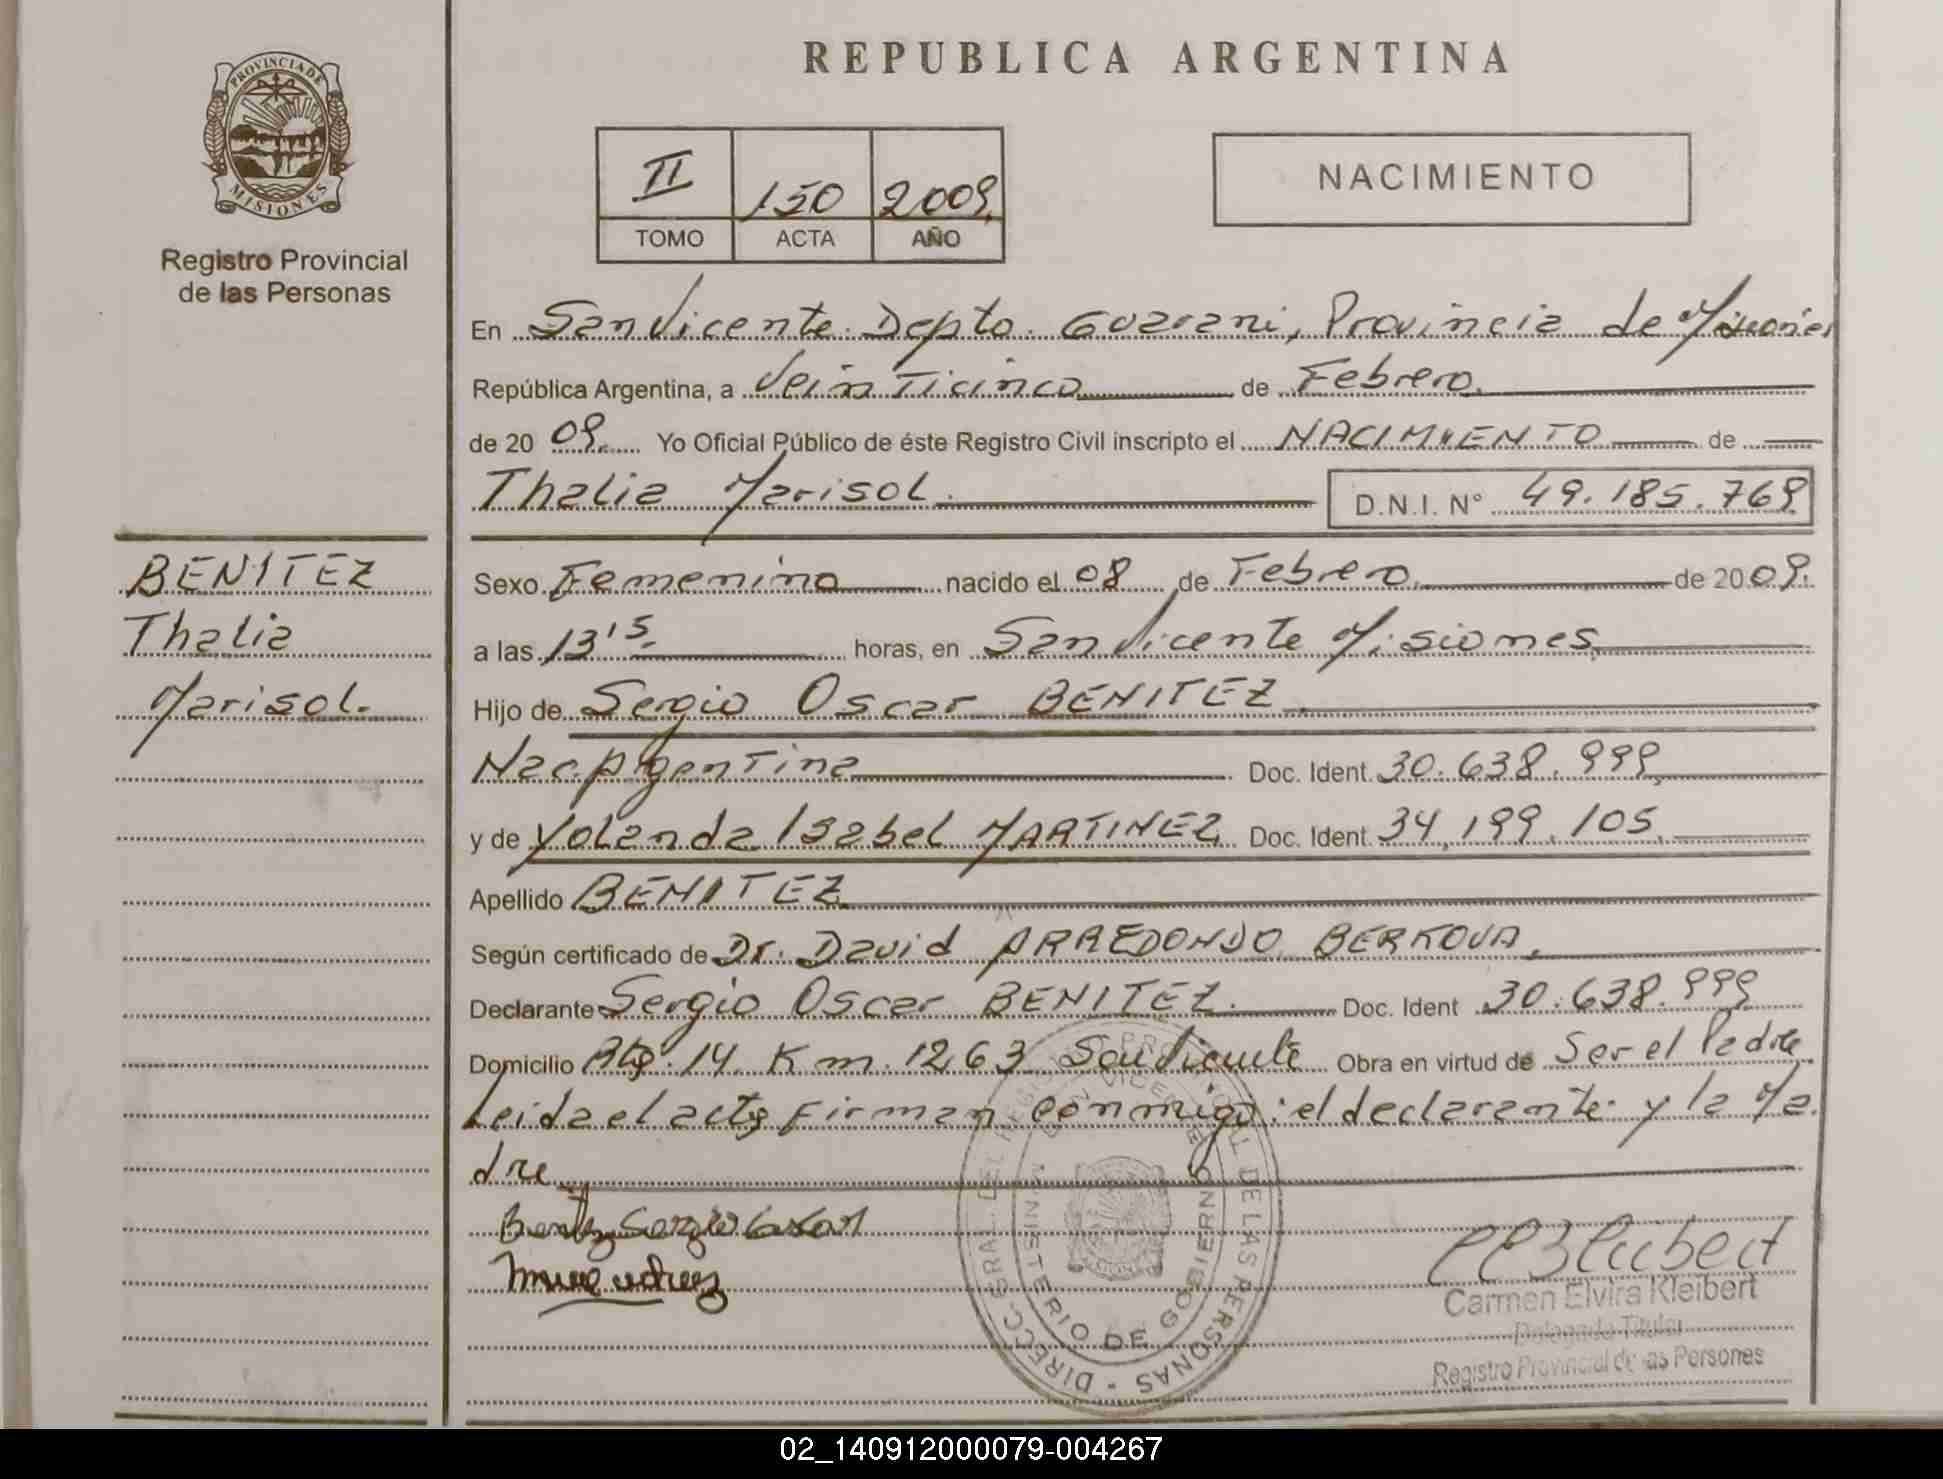 REPUBLICA ARGENTINA
PROVINCIA DE
MISIONES
Registro Provincial
de las Personas
II 150 2009.
TOMO ACTA AÑO
NACIMIENTO
En San Vicente. Depto. Guarani, Provincia de Misiones
República Argentina, a Veinticinco de Febrero.
de 20 09. Yo Oficial Público de éste Registro Civil inscripto el NACIMIENTO de
Thalia Marisol. D.N.I. N° 49.185.769
BENITEZ
Thalia
Marisol.
Sexo Femenino nacido el 08 de Febrero. de 2009.
a las 13'5. horas, en San Vicente Misiones.
Hijo de Sergio Oscar BENITEZ.
Nac. Argentina Doc. Ident. 30.638.999.
y de Yolanda Isabel MARTINEZ Doc. Ident. 34.199.105.
Apellido BENITEZ
Según certificado de Dr. David ARREDONDO BERKOVA.
Declarante Sergio Oscar BENITEZ. Doc. Ident 30.638.999
Domicilio 14 Km. 1263 San Vicente Obra en virtud de Ser el Padre
Leida el acta firman conmigo: el declarante y la Ma
dre
Benitez Sergio Oscar
DIRECC. GRAL. DEL REGISTRO PROVINCIAL DE LAS PERSONAS -
MINISTERIO DE GOBIERNO
SAN VICENTE
Carmen Elvira Kleibert
Delegada Titular
Registro Provincial de las Persones
02_140912000079-004267